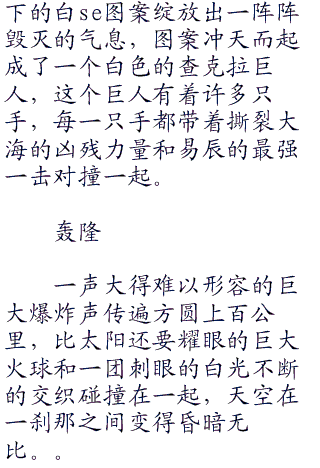 下的白se图案绽放出一阵阵
毁灭的气息，图案冲天而起
成了一个白色的查克拉巨
人，这个巨人有着许多只
手，每一只手都带着撕裂大
海的凶残力量和易辰的最强
一击对撞一起。
轰隆
一声大得难以形容的巨
大爆炸声传遍方圆上百公
里，比太阳还要耀眼的巨大
火球和一团刺眼的白光不断
的交织碰撞在一起，天空在
一刹那之间变得昏暗无
比。。